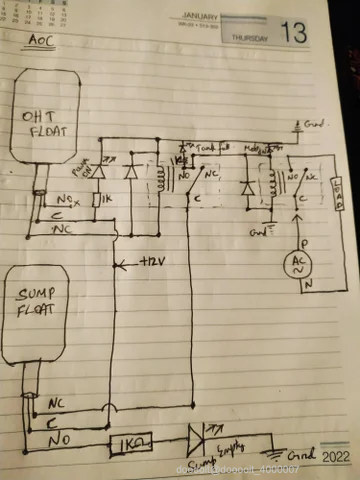 JANUARY
THURSDAY 13
AOC
OHT
FLOAT
Gnd
Tank full
Power
ON
1K
NO
NC
C
NO
NC
C
LOAD
NOx
C
NC
Gnd
P
AC
~
N
+12V
SUMP
FLOAT
NC
C
NO
1KΩ
Sump Empty
Gnd
2022